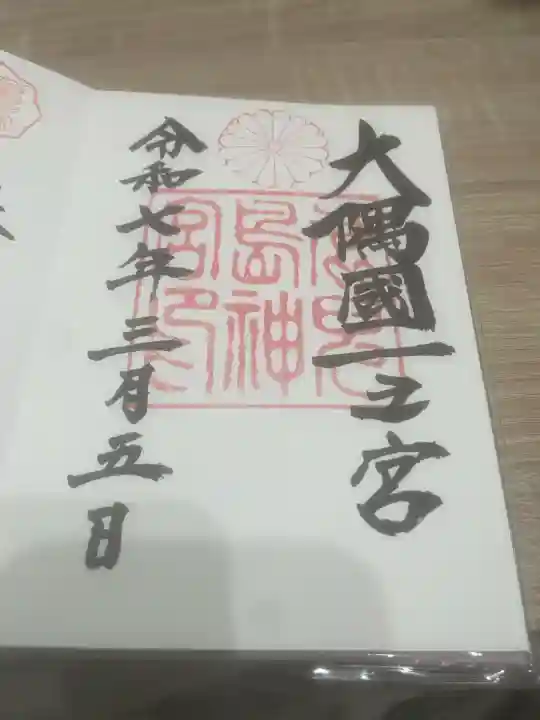 大隅國一之宮
鹿児島神宮印
令和七年三月五日